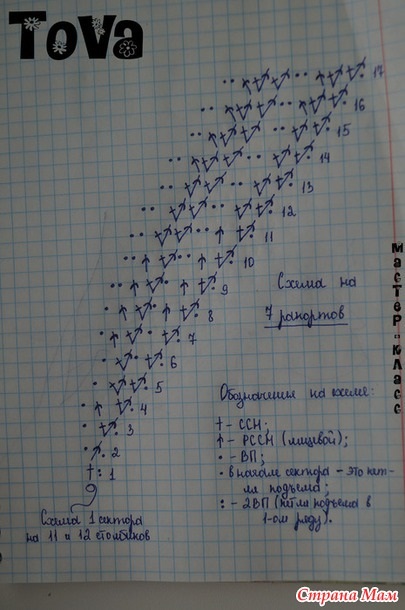 Tova
17
16
15
14
13
12
11
10
9
8
7
6
5
4
3
2
1
Схема на
7 рапортов
мастер-класс
Обозначения на схеме:
† - ССН;
↑ - РССН (лицевой);
• - ВП;
• в начале сектора - это пет-
ля подъема;
: - 2ВП (петля подъема в
1-ом ряду).
Схема 1 сектора
на 11 и 12 столбиков
Страна Мам